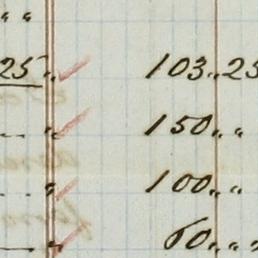 „ „
25 „ 103„25
„ 150„ „
„ 100„ „
„ 60„ „